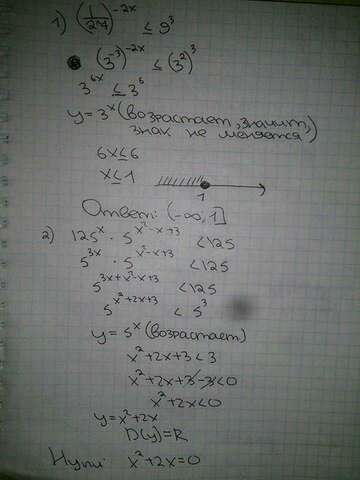 1) (1/27)^-2x ≤ 9^3
(3^-3)^-2x ≤ (3^2)^3
3^6x ≤ 3^6
y = 3^x (возрастает, значит,
знак не меняется)
6x ≤ 6
x ≤ 1
1
Ответ: (-∞, 1]
2) 125^x · 5^(x^2-x+3) < 125
5^3x · 5^(x^2-x+3) < 125
5^(3x+x^2-x+3) < 125
5^(x^2+2x+3) < 5^3
y = 5^x (возрастает)
x^2+2x+3 < 3
x^2+2x+3-3<0
x^2+2x<0
y = x^2+2x
D(y)=R
Нули: x^2+2x=0